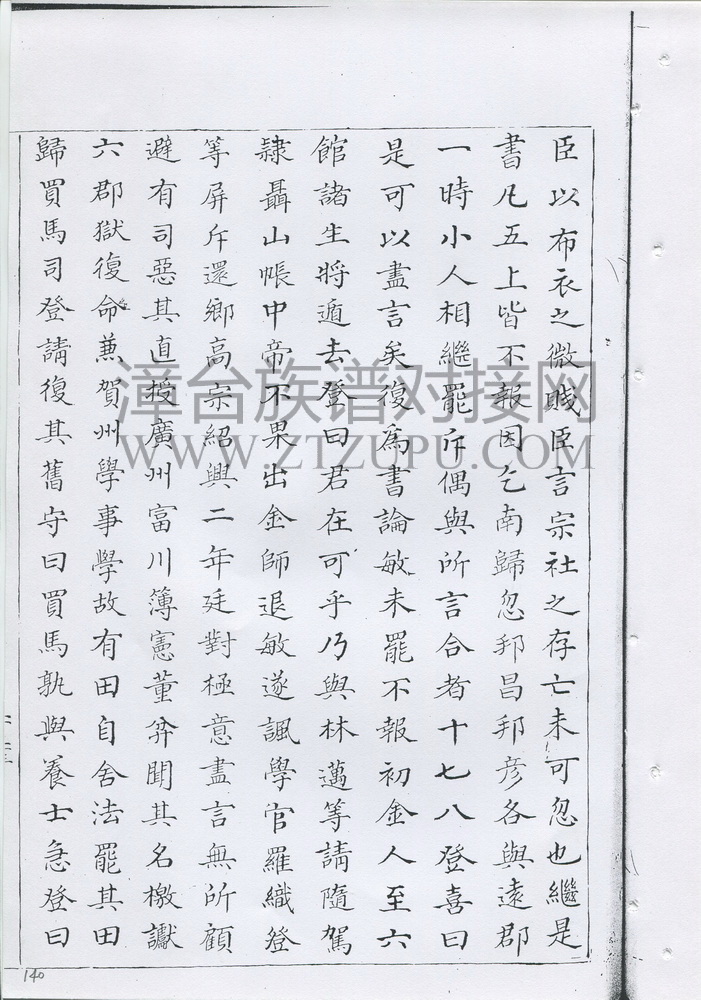 臣以布衣之微賤臣言宗社之存亡未可忽也繼是
書凡五上皆不報因乞南歸忽邦昌邦彥各與遠郡
一時小人相繼罷斥偶與所言合者十七八登喜曰
是可以盡言矣復為書論敏未罷不報初金人至六
館諸生將遁去登曰君在可乎乃與林邁等請隨駕
隸聶山帳中帝不果出金師退敏遂諷學官羅織登
等屏斥還鄉高宗紹興二年廷對極意盡言無所顧
避有司惡其直授廣州富川簿憲董弅聞其名檄讞
六郡獄復命兼賀州學事學故有田自舍法罷其田
歸買馬司登請復其舊守曰買馬孰與養士急登曰
漳台族谱对接网
WWW.ZTZUPU.COM
140